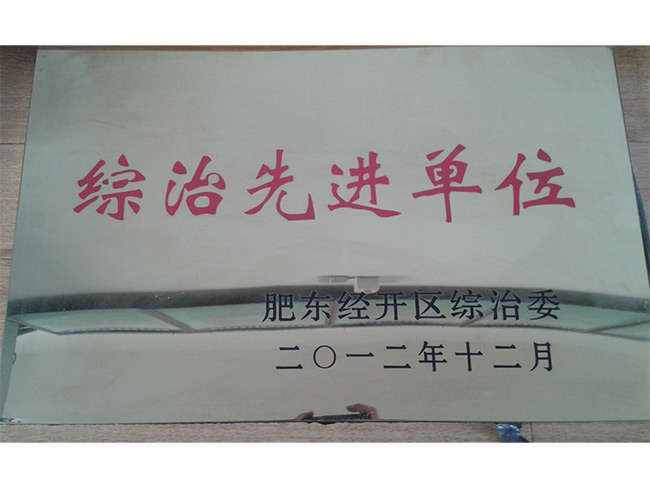 综治先进单位
肥东经开区综治委
二〇一二年十二月